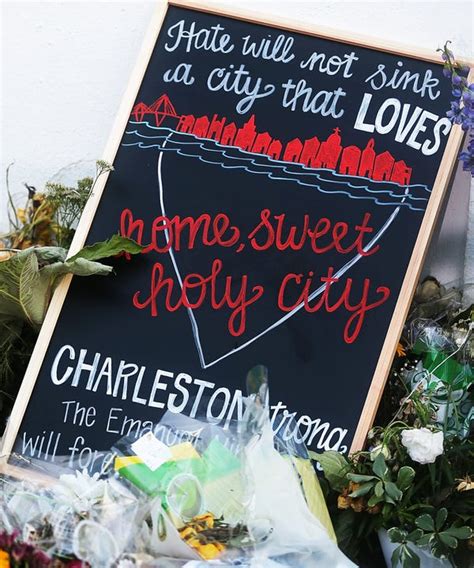 Hate will not sink
a city that LOVES
home, sweet
holy city
CHARLESTON strong
The Emanuel
will